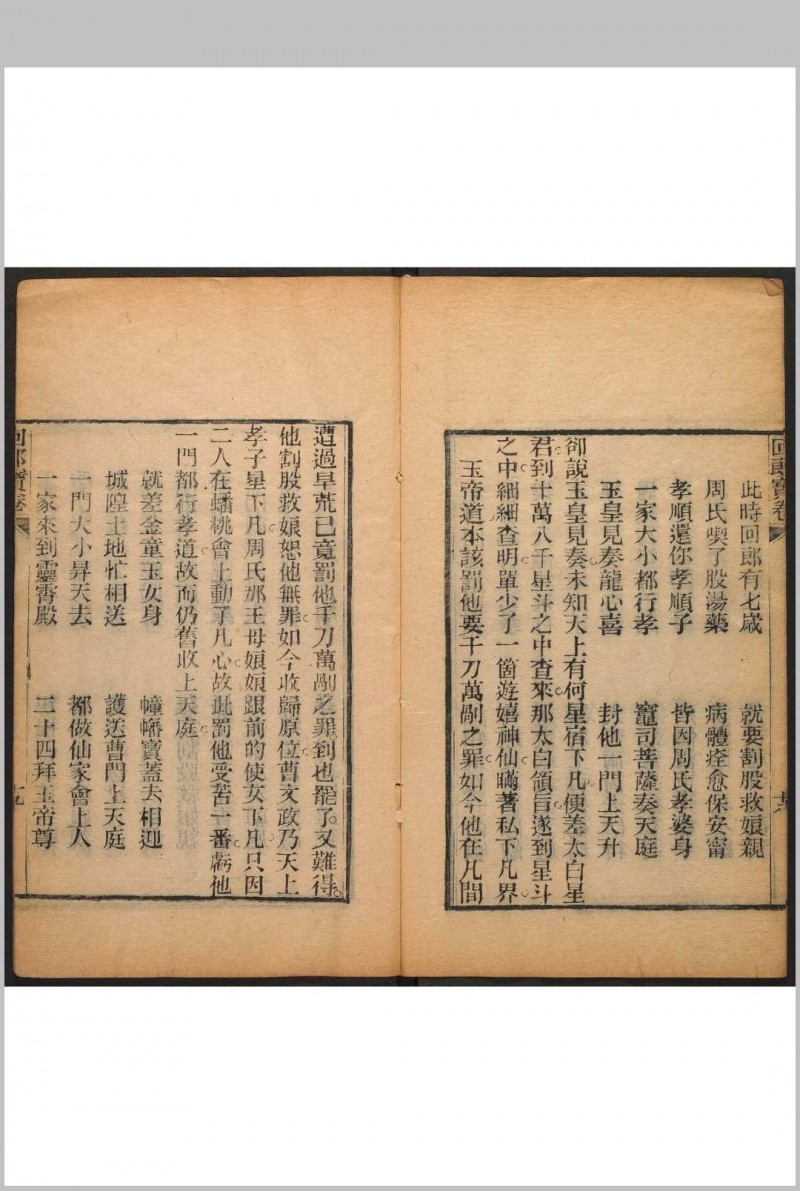 回郎寶卷
十八
此時回郎有七歲　就要割股救娘親
周氏喫了股湯藥　病體痊愈保安甯
孝順還你孝順子　皆因周氏孝婆身
一家大小都行孝　竈司菩薩奏天庭
玉皇見奏龍心喜　封他一門上天升
卻說玉皇見奏未知天上有何星宿下凡便差太白星
君到十萬八千星斗之中查來那太白領旨遂到星斗
之中細細查明單少了一箇遊嬉神仙瞞著私下凡界
玉帝道本該罰他要千刀萬剮之罪如今他在凡間
遭過旱荒已竟罰他千刀萬剮之罪到也罷了又難得
他割股救娘恕他無罪如今收歸原位曹文政乃天上
孝子星下凡周氏那王母娘娘跟前的使女下凡只因
二人在蟠桃會上動了凡心故此罰他受苦一番虧他
一門都行孝道故而仍舊收上天庭
就差金童玉女身　幢幡寶蓋去相迎
城隍土地忙相送　護送曹門上天庭
一門大小昇天去　都做仙家會上人
一家來到靈霄殿　二十四拜玉帝尊
回郎寶卷
十九